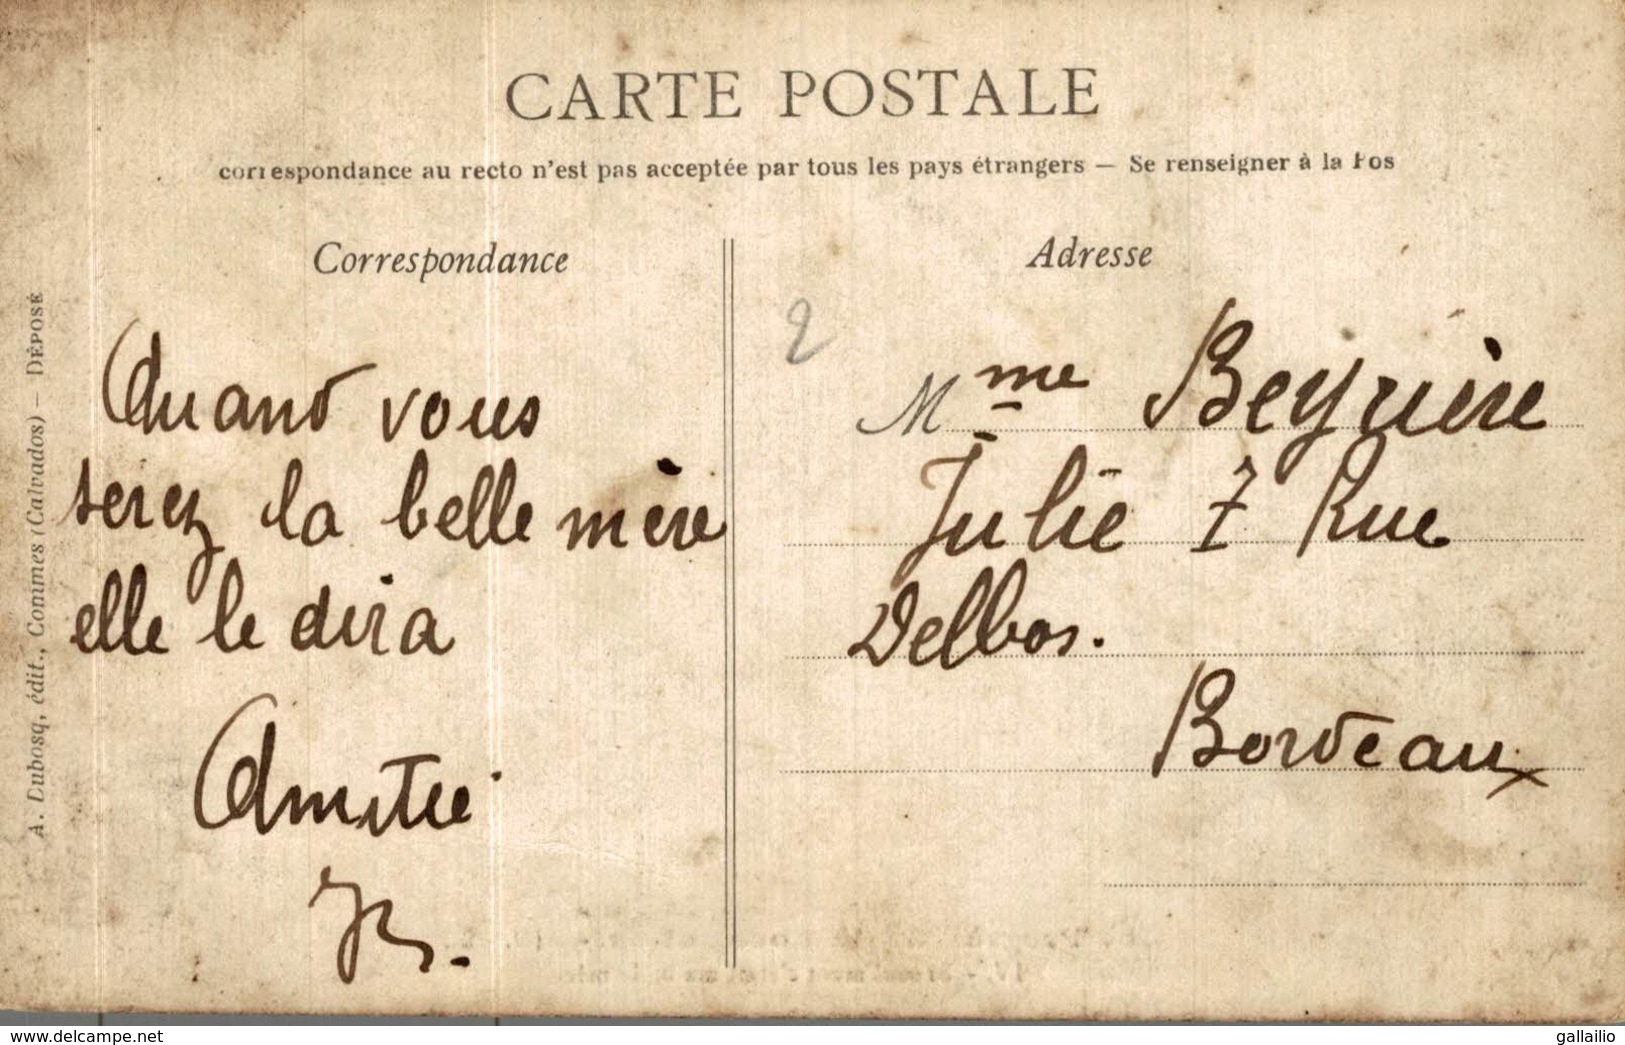 CARTE POSTALE
correspondance au recto n'est pas acceptée par tous les pays étrangers — Se renseigner à la Pos
Correspondance
Adresse
A. Dubosq, édit., Commes (Calvados) — DÉPOSÉ
2
Quand vous
serez la belle mère
elle le dira
Amitié
JB.
Mme Beyrière
Julie 7 Rue
Delbos.
Bordeaux
delcampe.net
gallailio